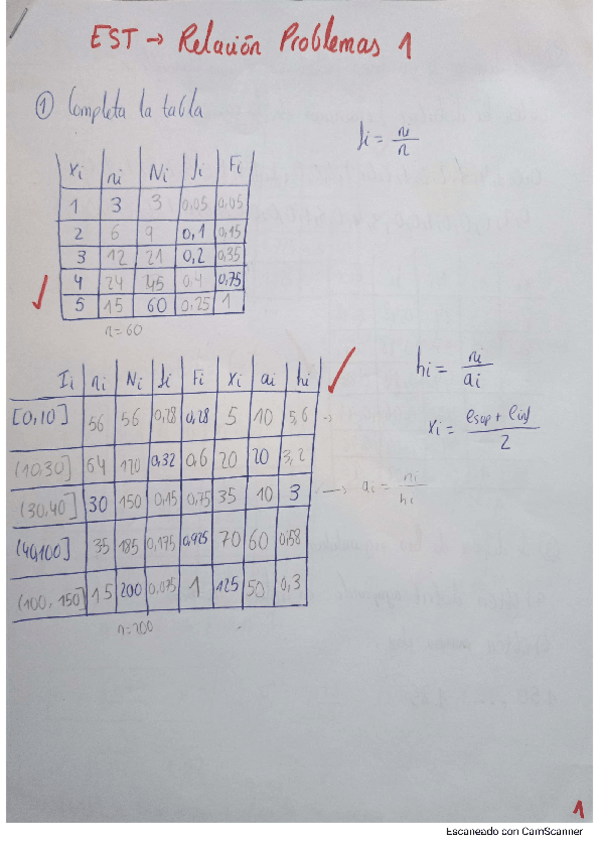 EST → Relación Problemas 1
① Completa la tabla
fi = ni/n
xi ni Ni fi Fi
1 3 3 0,05 0,05
2 6 9 0,1 0,15
3 12 21 0,2 0,35
4 24 45 0,4 0,75
5 15 60 0,25 1
n=60
Ii ni Ni fi Fi xi ai hi
[0,10] 56 56 0,28 0,28 5 10 5,6 →
(10,30] 64 120 0,32 0,6 20 20 3,2
(30,40] 30 150 0,15 0,75 35 10 3 → ai = ni/hi
(40,100] 35 185 0,175 0,925 70 60 0,58
(100,150] 15 200 0,075 1 125 50 0,3
n=200
hi = ni/ai
xi = (esup + einf)/2
1
Escaneado con CamScanner